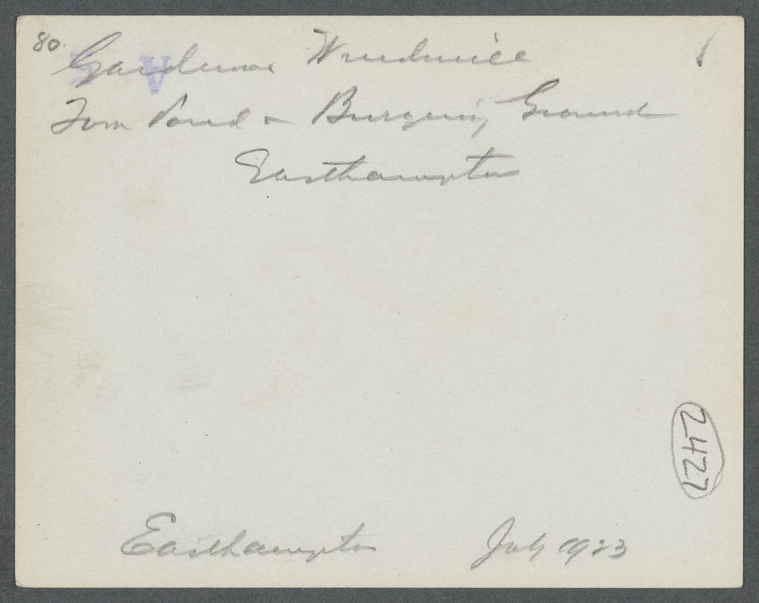 80.
Gardiner Windmill
V
Town Pond & Burying Ground
Easthampton
2427
Easthampton July 1923